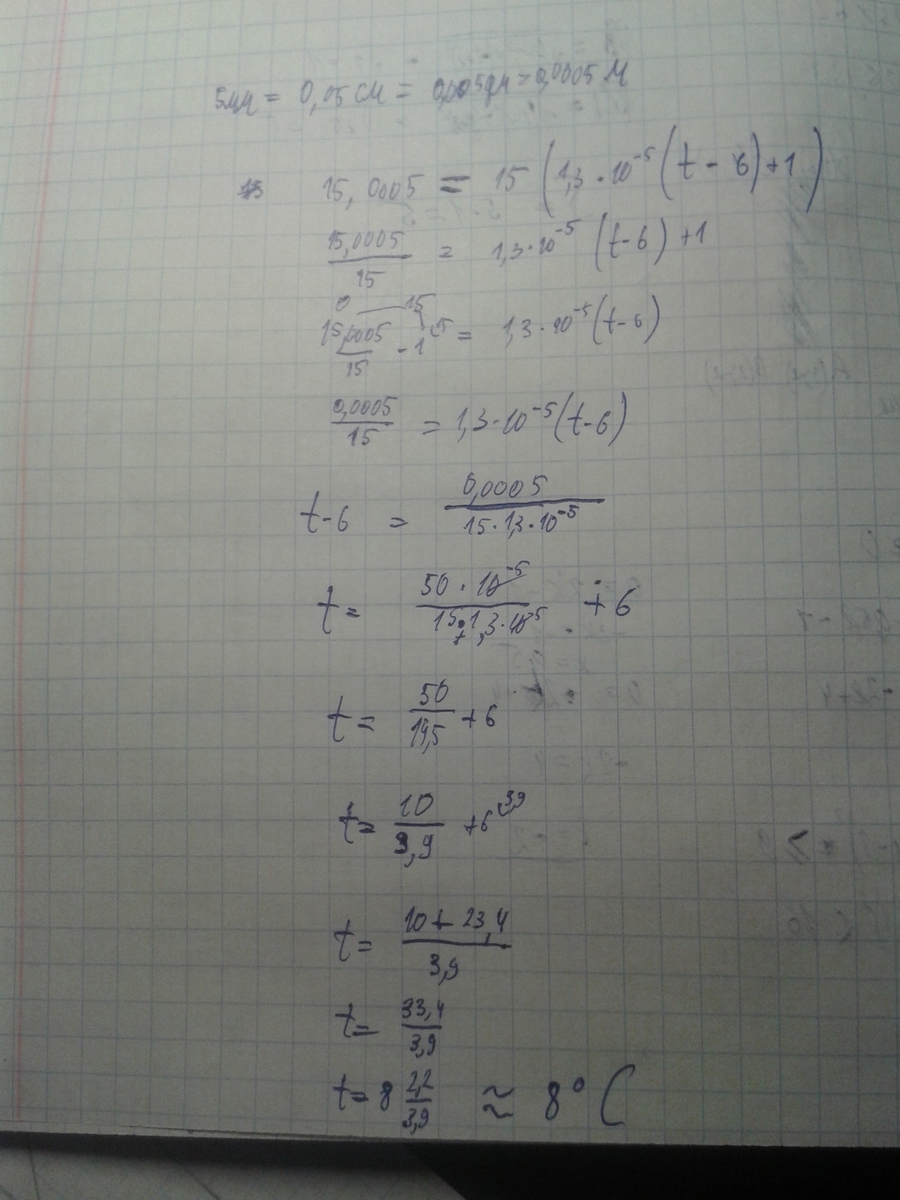 5мм = 0,05 см = 0,005дм = 0,0005 М
15,0005 = 15 (1,3 · 10⁻⁵ (t - 6) + 1)
15,0005/15 = 1,3 · 10⁻⁵ (t-6) + 1
15,0005/15 - 1 = 1,3 · 10⁻⁵ (t-6)
0,0005/15 = 1,3 · 10⁻⁵ (t-6)
t-6 = 0,0005/15 · 1,3 · 10⁻⁵
t = 50 · 10⁻⁵/15 · 1,3 · 10⁻⁵ + 6
t = 50/19,5 + 6
t = 10/3,9 + 6 3,9
t = 10 + 23,4/3,9
t = 33,4/3,9
t = 8 2,2/3,9 ≈ 8° C